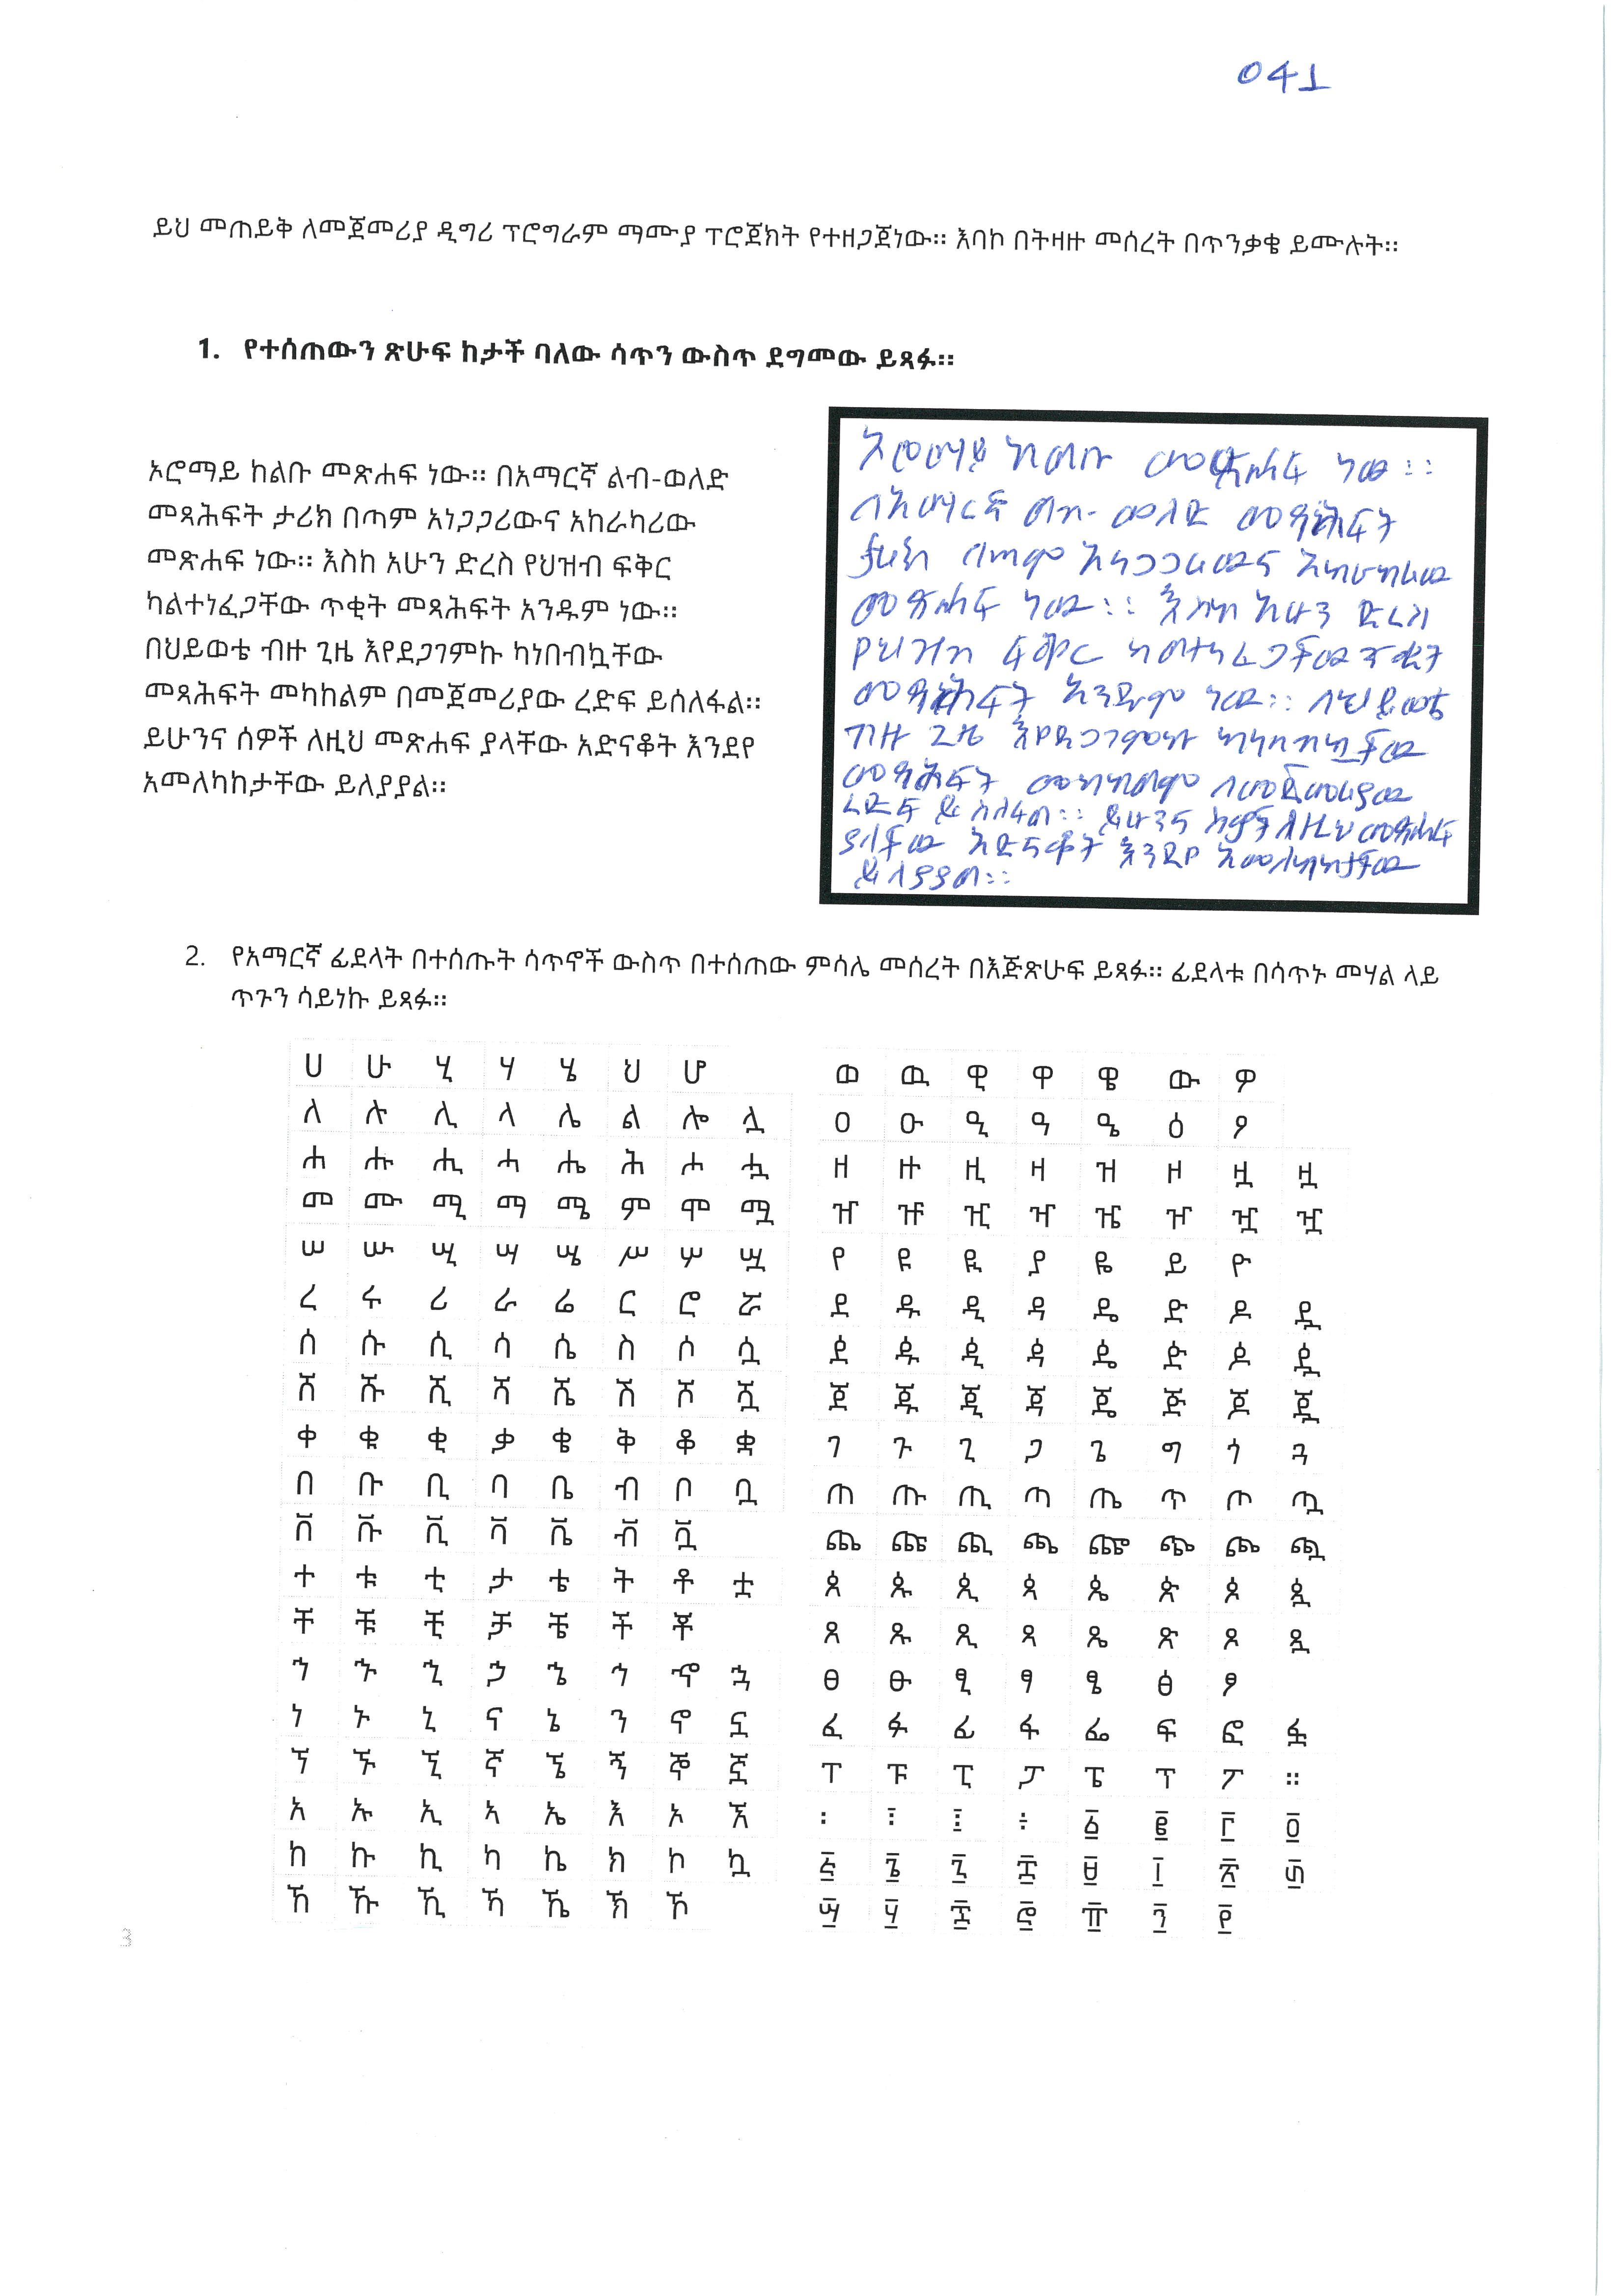 041
ይህ መጠይቅ ለመጀመሪያ ዲግሪ ፕሮግራም ማሙያ ፕሮጀክት የተዘጋጀነው። እባኮ በትዛዙ መሰረት በጥንቃቄ ይሙሉት።
1. የተሰጠውን ጽሁፍ ከታች ባለው ሳጥን ውስጥ ደግመው ይጻፉ።
ኦሮማይ ከልቡ መጽሐፍ ነው። በአማርኛ ልብ-ወለድ
መጻሕፍት ታሪክ በጣም አነጋጋሪውና አከራካሪው
መጽሐፍ ነው። እስከ አሁን ድረስ የህዝብ ፍቅር
ካልተነፈጋቸው ጥቂት መጻሕፍት አንዱም ነው።
በህይወቴ ብዙ ጊዜ እየደጋገምኩ ካነበብኳቸው
መጻሕፍት መካከልም በመጀመሪያው ረድፍ ይሰለፋል።
ይሁንና ሰዎች ለዚህ መጽሐፍ ያላቸው አድናቆት እንደየ
አመለካከታቸው ይለያያል።
ኦሮማይ ከልቡ መጽሐፍ ነው።
በአማርኛ ልብ-ወለድ መጻሕፍት
ታሪክ በጣም አነጋጋሪውና አከራካሪው
መጽሐፍ ነው። እስከ አሁን ድረስ
የህዝብ ፍቅር ካልተነፈጋቸው ጥቂት
መጻሕፍት አንዱም ነው። በህይወቴ
ብዙ ጊዜ እየደጋገምኩ ካነበብኳቸው
መጻሕፍት መካከልም በመጀመሪያው
ረድፍ ይሰለፋል። ይሁንና ሰዎች ለዚህ መጽሐፍ
ያላቸው አድናቆት እንደየ አመለካከታቸው
ይለያያል።
2. የአማርኛ ፊደላት በተሰጡት ሳጥኖች ውስጥ በተሰጠው ምሳሌ መሰረት በእጅጽሁፍ ይጻፉ። ፊደላቱ በሳጥኑ መሃል ላይ
ጥጉን ሳይነኩ ይጻፉ።
ሀ ሁ ሂ ሃ ሄ ህ ሆ
ለ ሉ ሊ ላ ሌ ል ሎ ሏ
ሐ ሑ ሒ ሓ ሔ ሕ ሖ ሗ
መ ሙ ሚ ማ ሜ ም ሞ ሟ
ሠ ሡ ሢ ሣ ሤ ሥ ሦ ሧ
ረ ሩ ሪ ራ ሬ ር ሮ ሯ
ሰ ሱ ሲ ሳ ሴ ስ ሶ ሷ
ሸ ሹ ሺ ሻ ሼ ሽ ሾ ሿ
ቀ ቁ ቂ ቃ ቄ ቅ ቆ ቋ
በ ቡ ቢ ባ ቤ ብ ቦ ቧ
ቨ ቩ ቪ ቫ ቬ ቭ ቯ
ተ ቱ ቲ ታ ቴ ት ቶ ቷ
ቸ ቹ ቺ ቻ ቼ ች ቾ
ኀ ኁ ኂ ኃ ኄ ኅ ኆ ኋ
ነ ኑ ኒ ና ኔ ን ኖ ኗ
ኘ ኙ ኚ ኛ ኜ ኝ ኞ ኟ
አ ኡ ኢ ኣ ኤ እ ኦ ኧ
ከ ኩ ኪ ካ ኬ ክ ኮ ኳ
ኸ ኹ ኺ ኻ ኼ ኽ ኾ
ወ ዉ ዊ ዋ ዌ ው ዎ
ዐ ዑ ዒ ዓ ዔ ዕ ዖ
ዘ ዙ ዚ ዛ ዝ ዞ ዟ ዟ
ዠ ዡ ዢ ዣ ዤ ዦ ዧ ዧ
የ ዩ ዪ ያ ዬ ይ ዮ
ደ ዱ ዲ ዳ ዴ ድ ዶ ዷ
ዸ ዹ ዺ ዻ ዼ ዽ ዾ ዿ
ጀ ጁ ጂ ጃ ጄ ጅ ጆ ጇ
ገ ጉ ጊ ጋ ጌ ግ ጎ ጓ
ጠ ጡ ጢ ጣ ጤ ጥ ጦ ጧ
ጨ ጩ ጪ ጫ ጬ ጭ ጮ ጯ
ጰ ጱ ጲ ጳ ጴ ጵ ጶ ጷ
ጸ ጹ ጺ ጻ ጼ ጽ ጾ ጿ
ፀ ፁ ፂ ፃ ፄ ፅ ፆ
ፈ ፉ ፊ ፋ ፌ ፍ ፎ ፏ
ፐ ፑ ፒ ፓ ፔ ፕ ፖ ።
፡ ፣ ፤ ፥ ፩ ፪ ፫ ፬
፭ ፮ ፯ ፰ ፱ ፲ ፳ ፴
፵ ፶ ፷ ፸ ፹ ፺ ፻
3